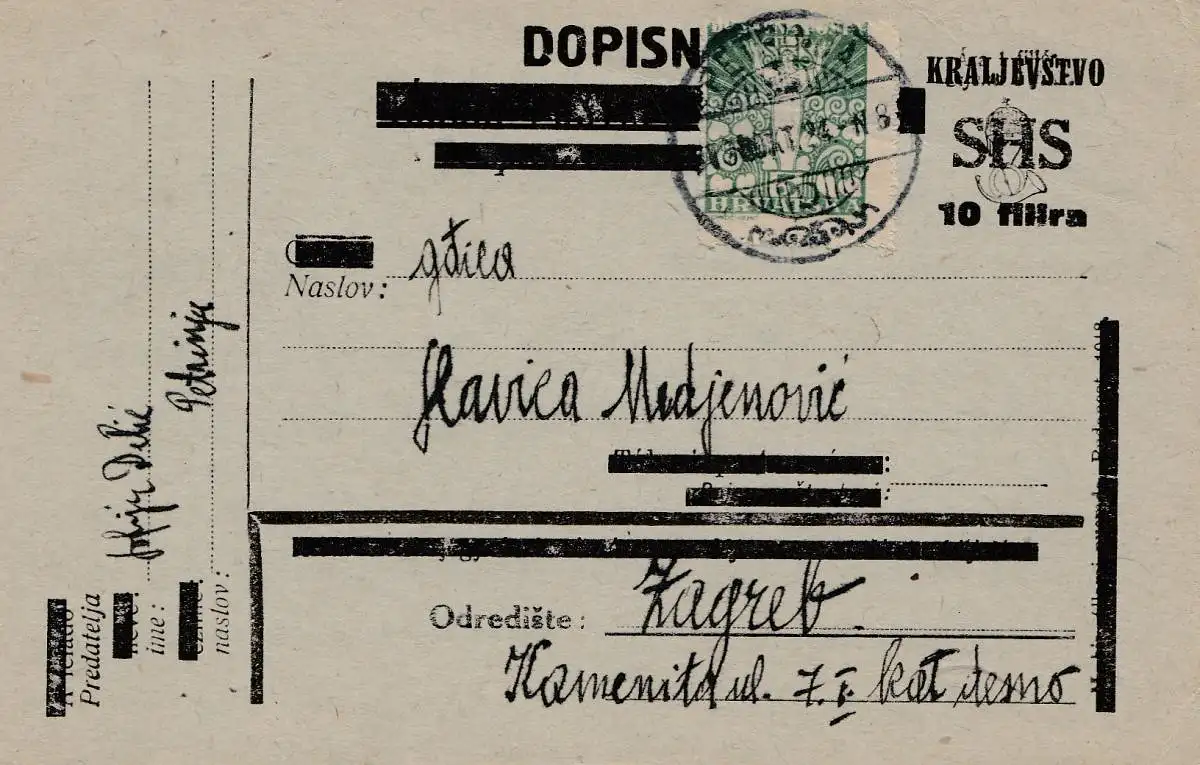 DOPISN
KRALJEVSTVO
SHS
10 filira
gđica
Naslov:
Slavica Medjenović
Odredište: Zagreb.
Kamenita ul. 7. I. kat desno
Predatelja
ime:
naslov: Petrinja